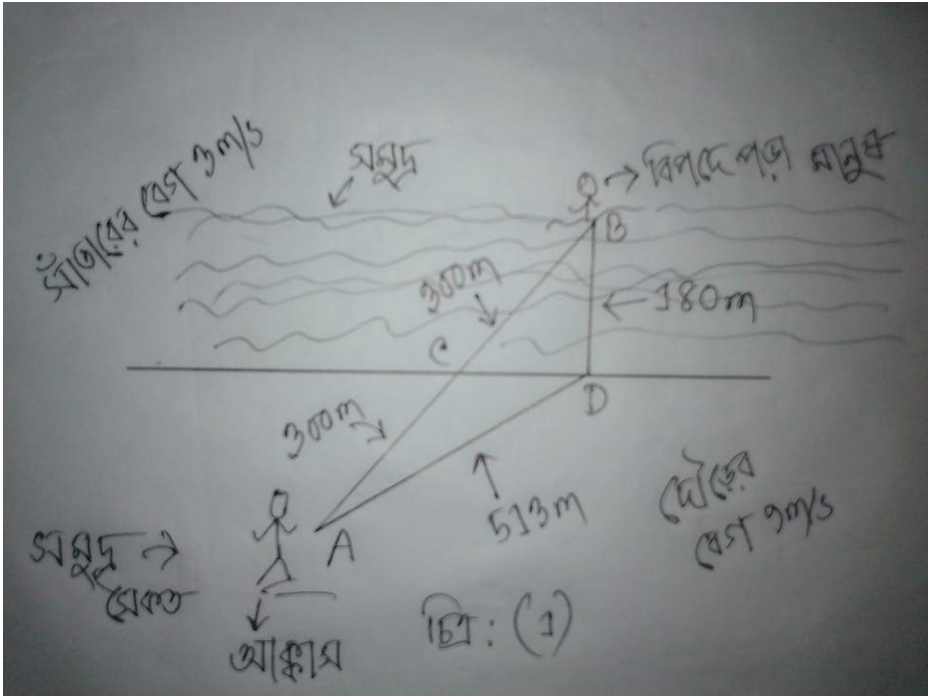 সাঁতারের বেগ 3m/s
সমুদ্র
বিপদে পড়া মানুষ
B
300m
180m
C
D
300m
513m
A
দৌড়ের
বেগ 9m/s
সমুদ্র
সৈকত
আক্কাস
চিত্র: (১)